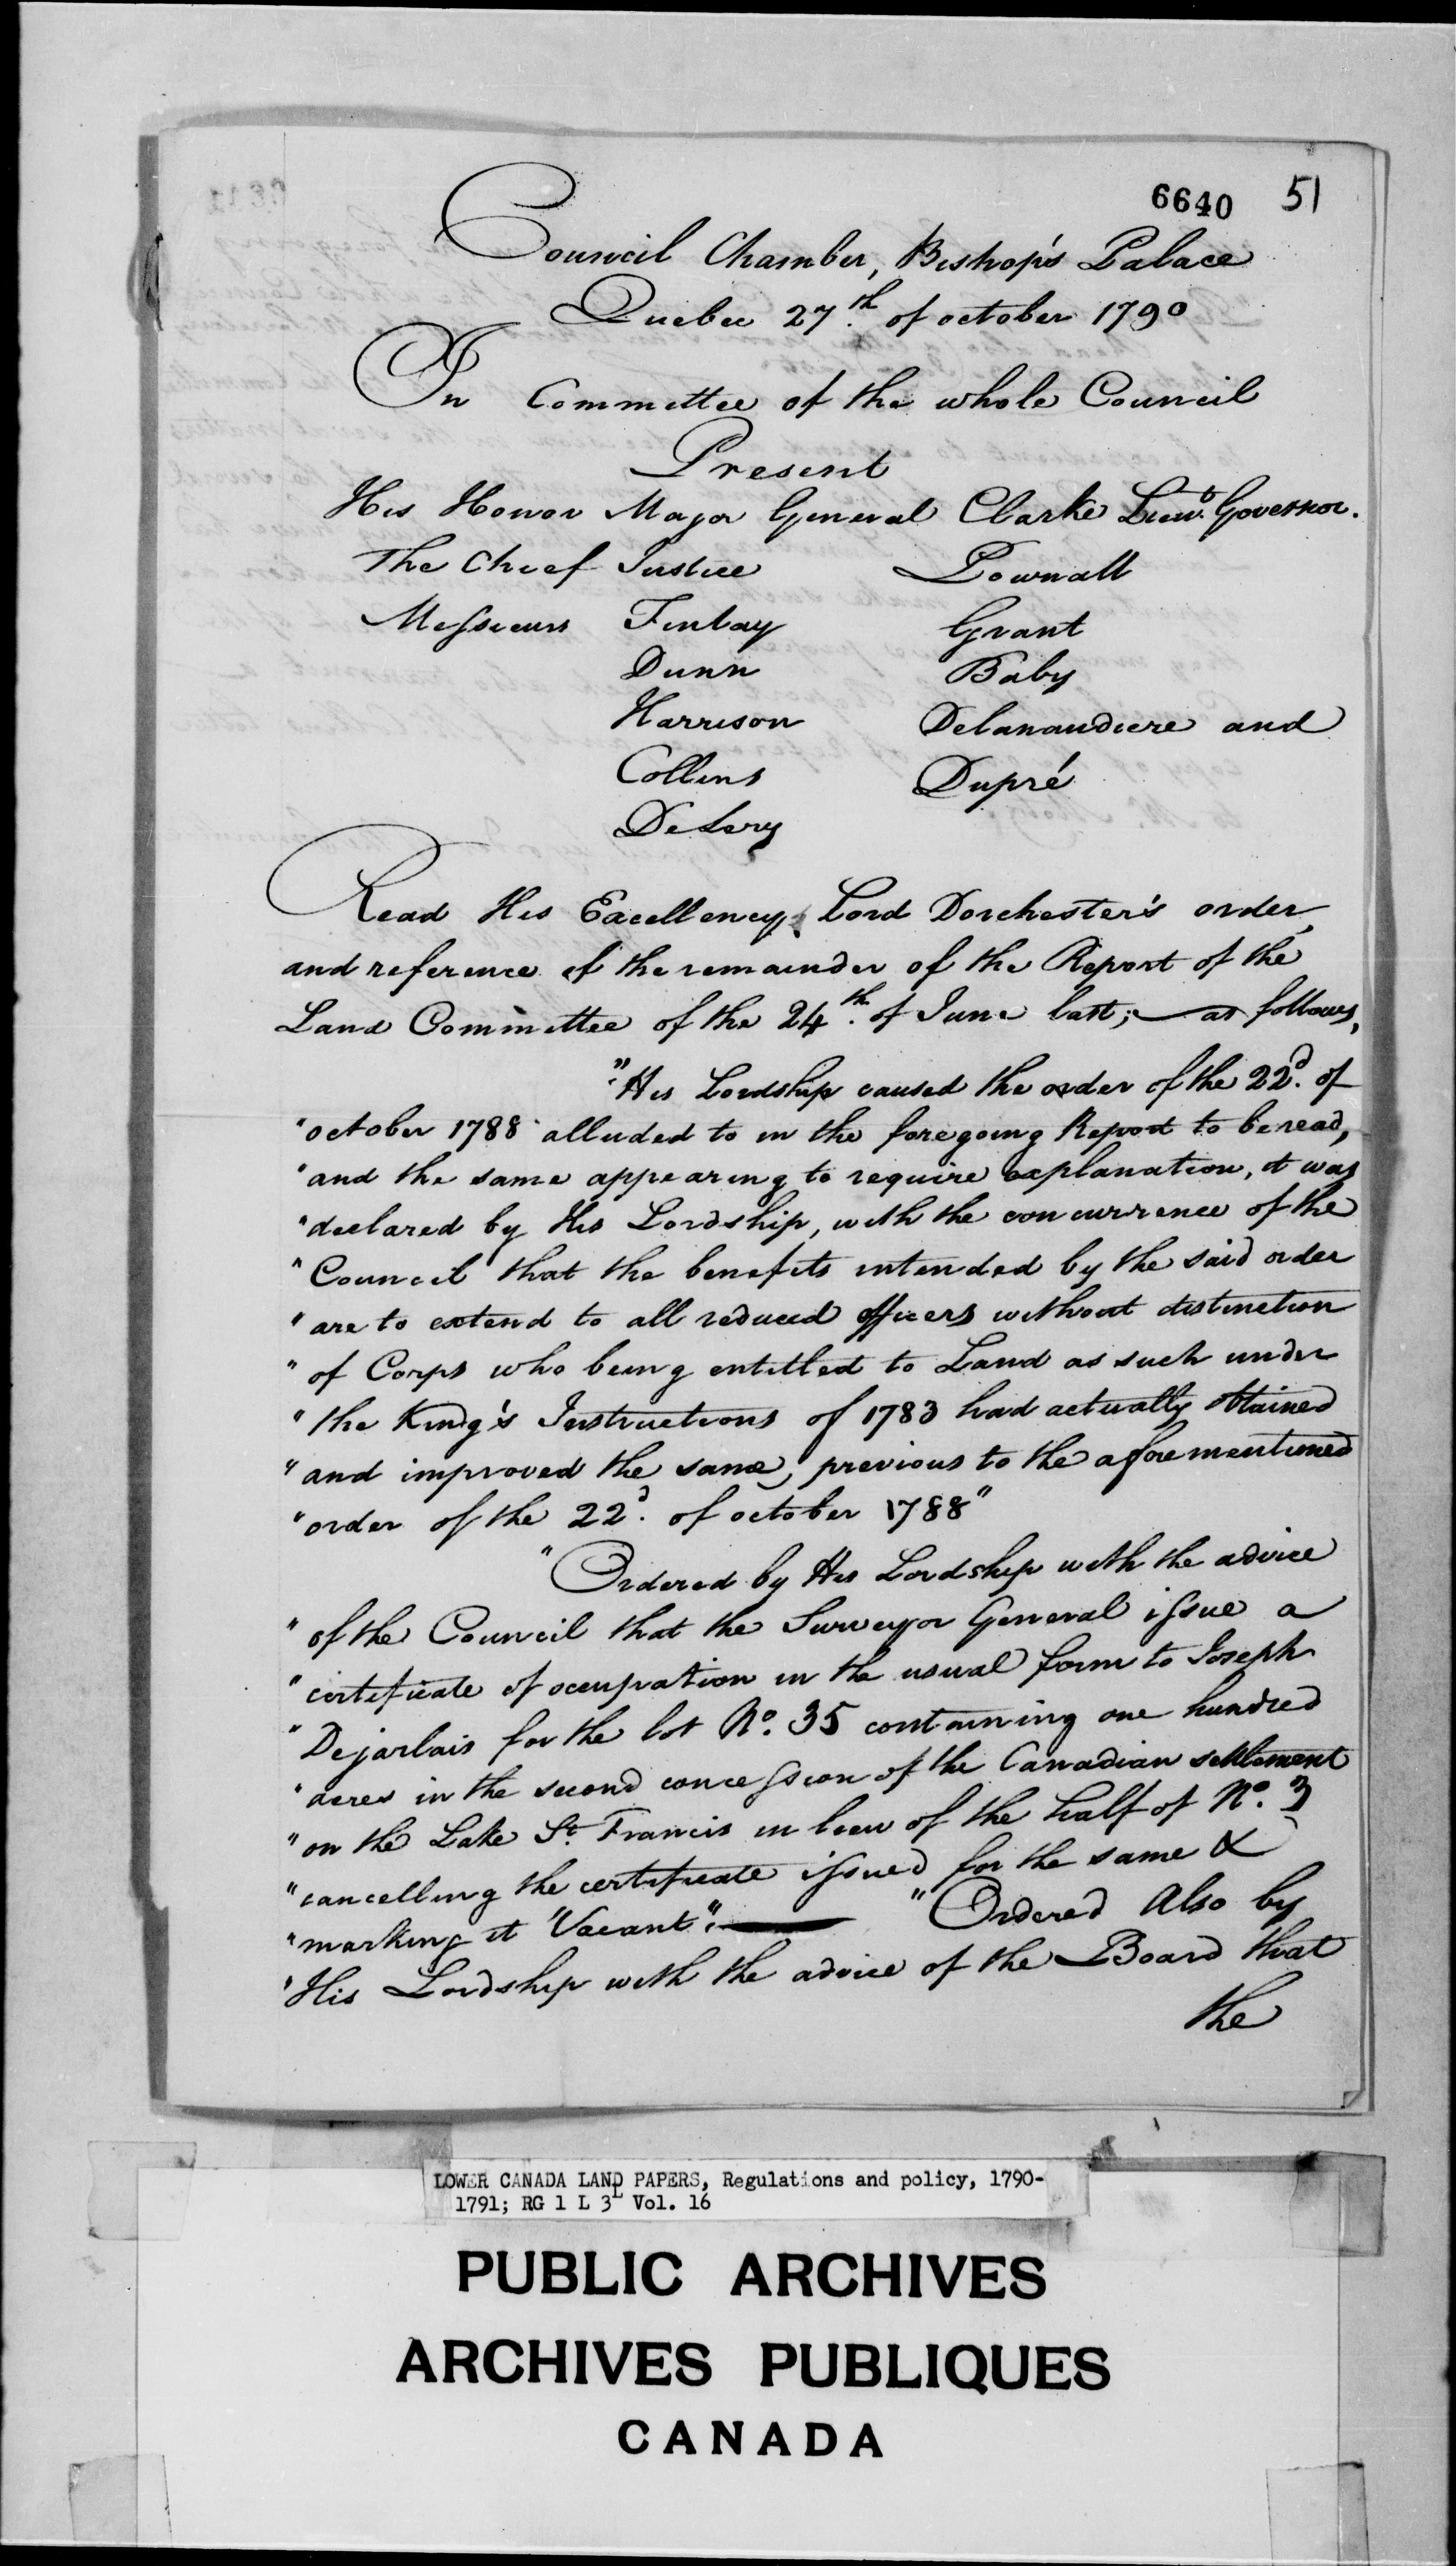 6640 51
Council Chamber, Bishop's Palace
Quebec 27.th of october 1790
In Committee of the whole Council
Present
His Honor Major General Clarke Lieut. Governor.
The Chief Justice Pownall
Messieurs Finlay Grant
Dunn Baby
Harrison Delanaudiere and
Collins Dupré
DeLery
Read His Excellency Lord Dorchester's order,
and reference of the remainder of the Report of the
Land Committee of the 24.th of June last; — as follows,
"His Lordship caused the order of the 22d. of
"october 1788 alluded to in the foregoing Report to be read,
"and the same appearing to require explanation, it was
"declared by His Lordship, with the concurrence of the
"Council that the benefits intended by the said order
"are to extend to all reduced officers without distinction
"of Corps who being entitled to Land as such under
"the King's Instructions of 1783 had actually obtained
"and improved the same, previous to the aforementioned
"order of the 22d. of october 1788"
"Ordered by His Lordship with the advice
"of the Council that the Surveyor General issue a
"certificate of occupation in the usual form to Joseph
"Dejarlais for the lot No. 35 containing one hundred
"acres in the second concession of the Canadian settlement
"on the Lake St. Francis in lieu of the half of No. 3
"cancelling the certificate issued for the same &
"marking it "Vacant". — "Ordered Also by
"His Lordship with the advice of the Board that
the
LOWER CANADA LAND PAPERS, Regulations and policy, 1790-
1791; RG 1 L 3L Vol. 16
PUBLIC ARCHIVES
ARCHIVES PUBLIQUES
CANADA